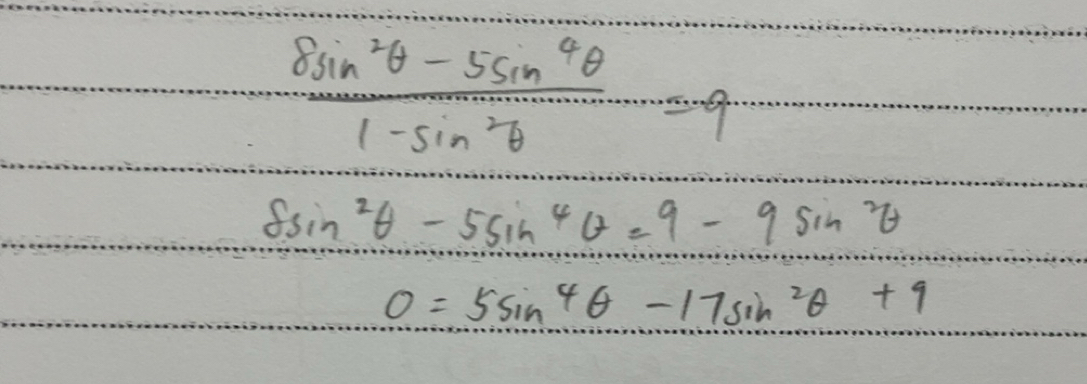 8sin²θ − 5sin⁴θ
1 − sin²θ = 9
8sin²θ − 5sin⁴θ = 9 − 9 sin²θ
0 = 5sin⁴θ − 17sin²θ + 9